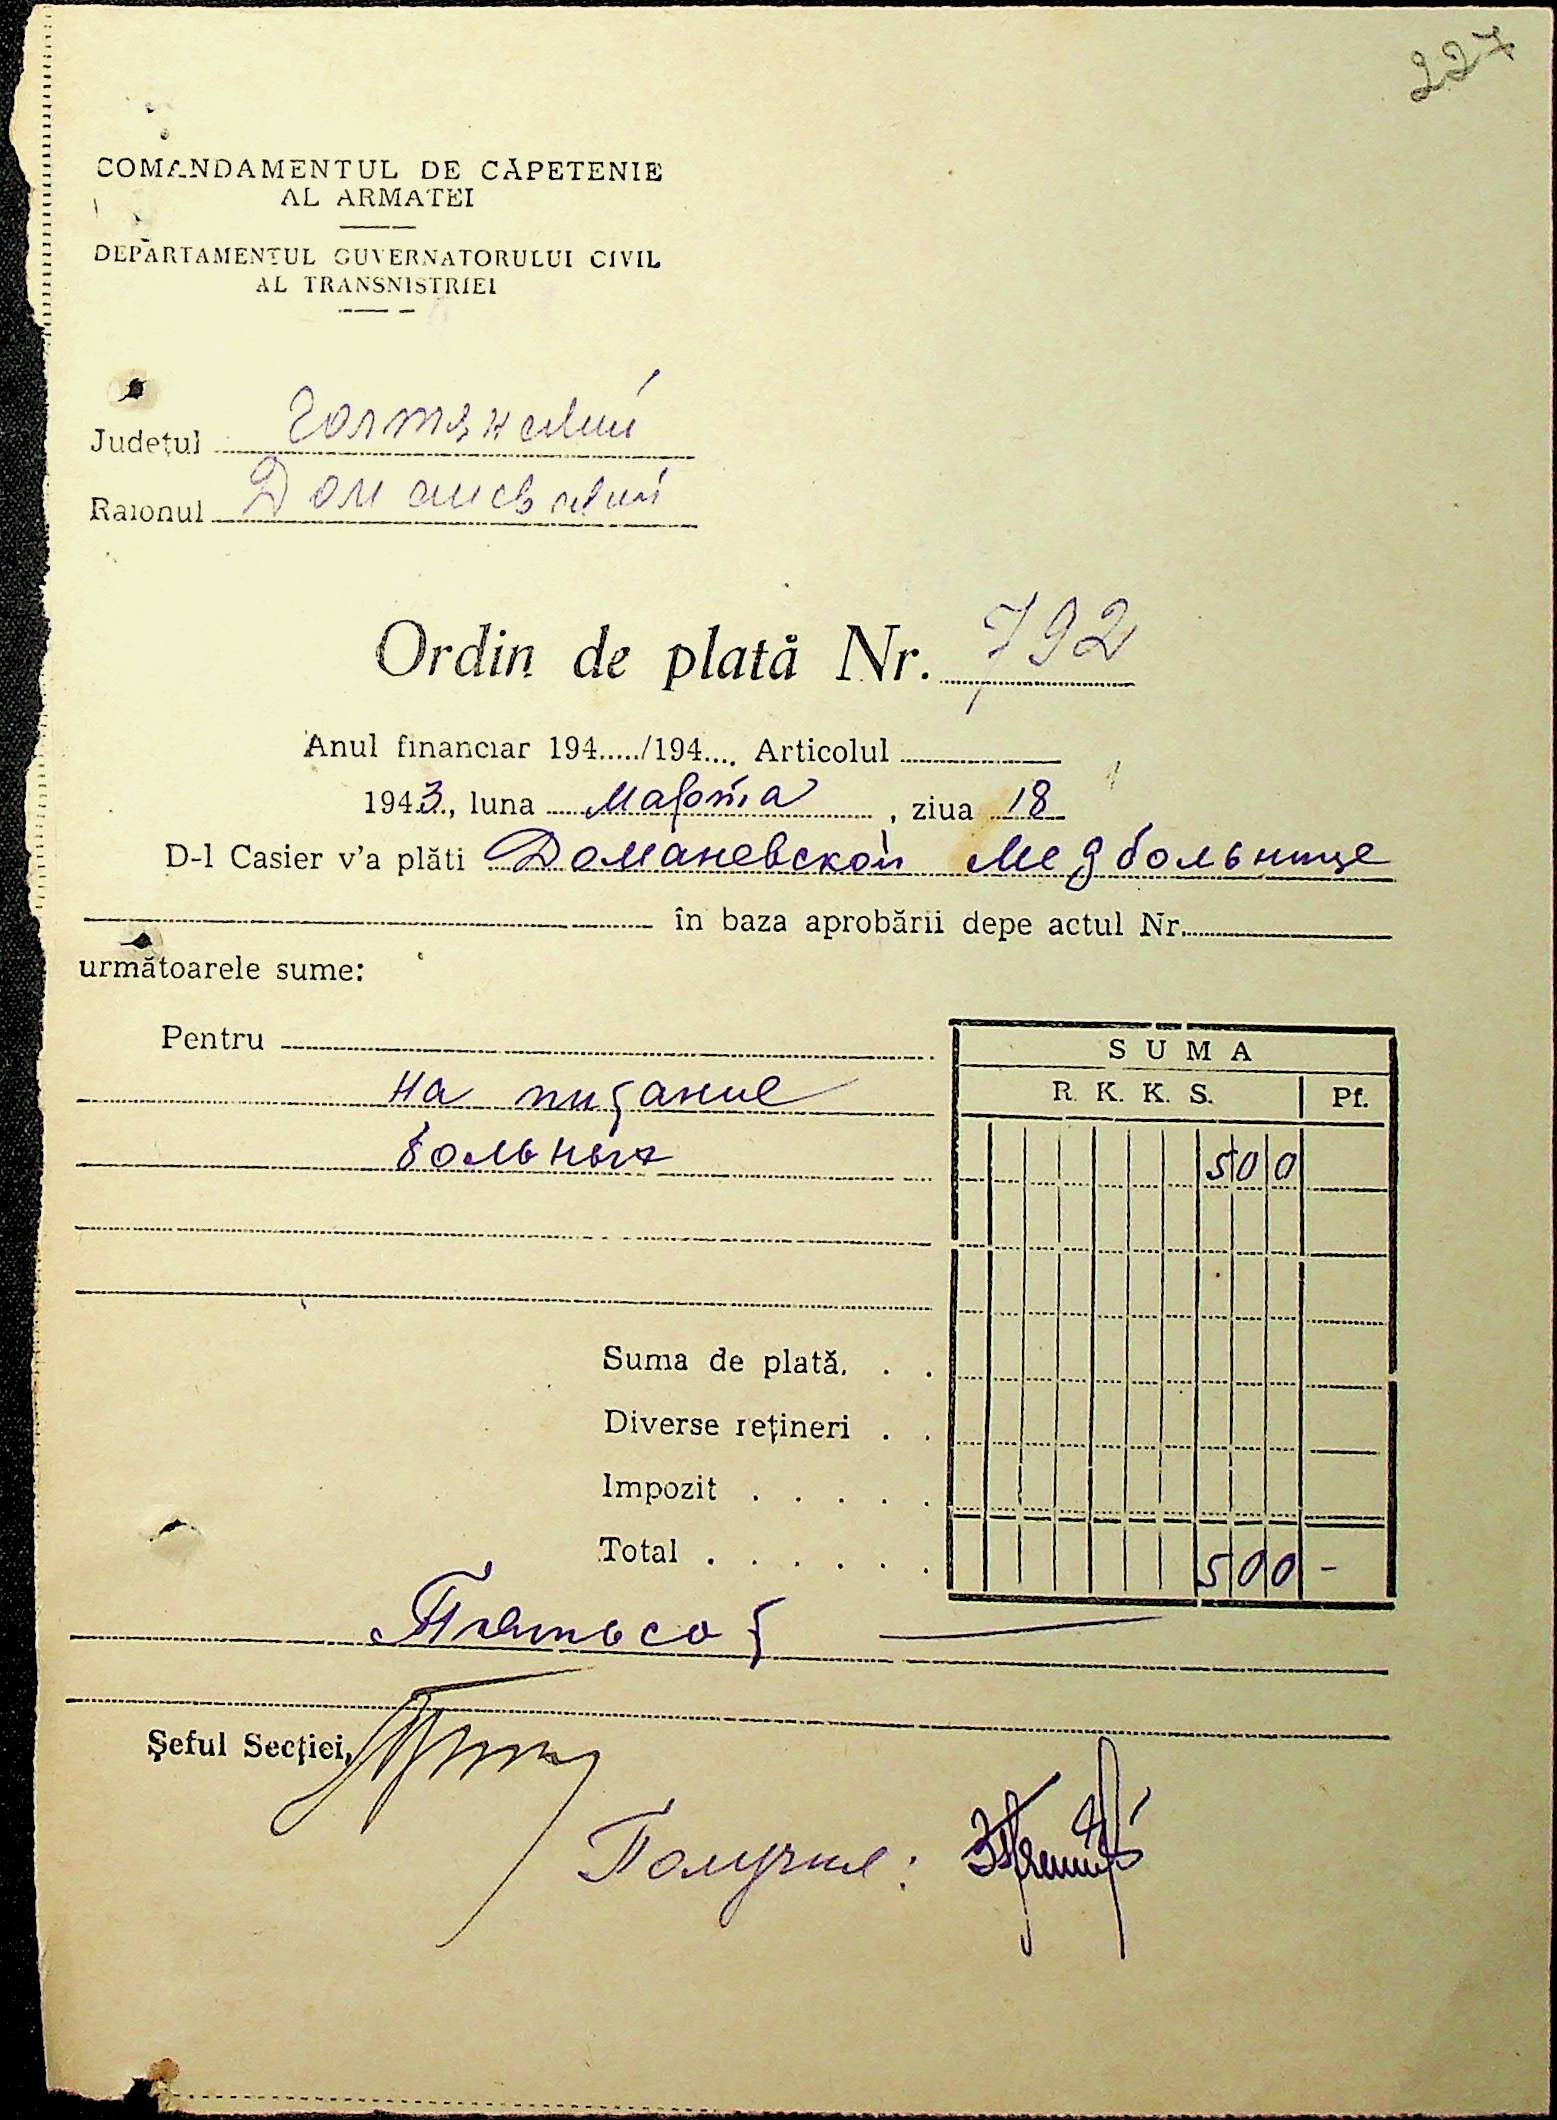 227
COMANDAMENTUL DE CĂPETENIE
AL ARMATEI
DEPARTAMENTUL GUVERNATORULUI CIVIL
AL TRANSNISTRIEI
Județul Голтянский
Raionul Доманевский
Ordin de plată Nr. 792
Anul financiar 194...../194.... Articolul
1943, luna Марта, ziua 18
D-l Casier v'a plăti Доманевской Медбольнице
în baza aprobării depe actul Nr.
următoarele sume:
Pentru
на питание
больных
SUMA
R. K. K. S. Pf.
500
Suma de plată. . .
Diverse rețineri . .
Impozit . . . . .
Total . . . . . . 500 -
Пятьсот
Șeful Secției,
Получил: